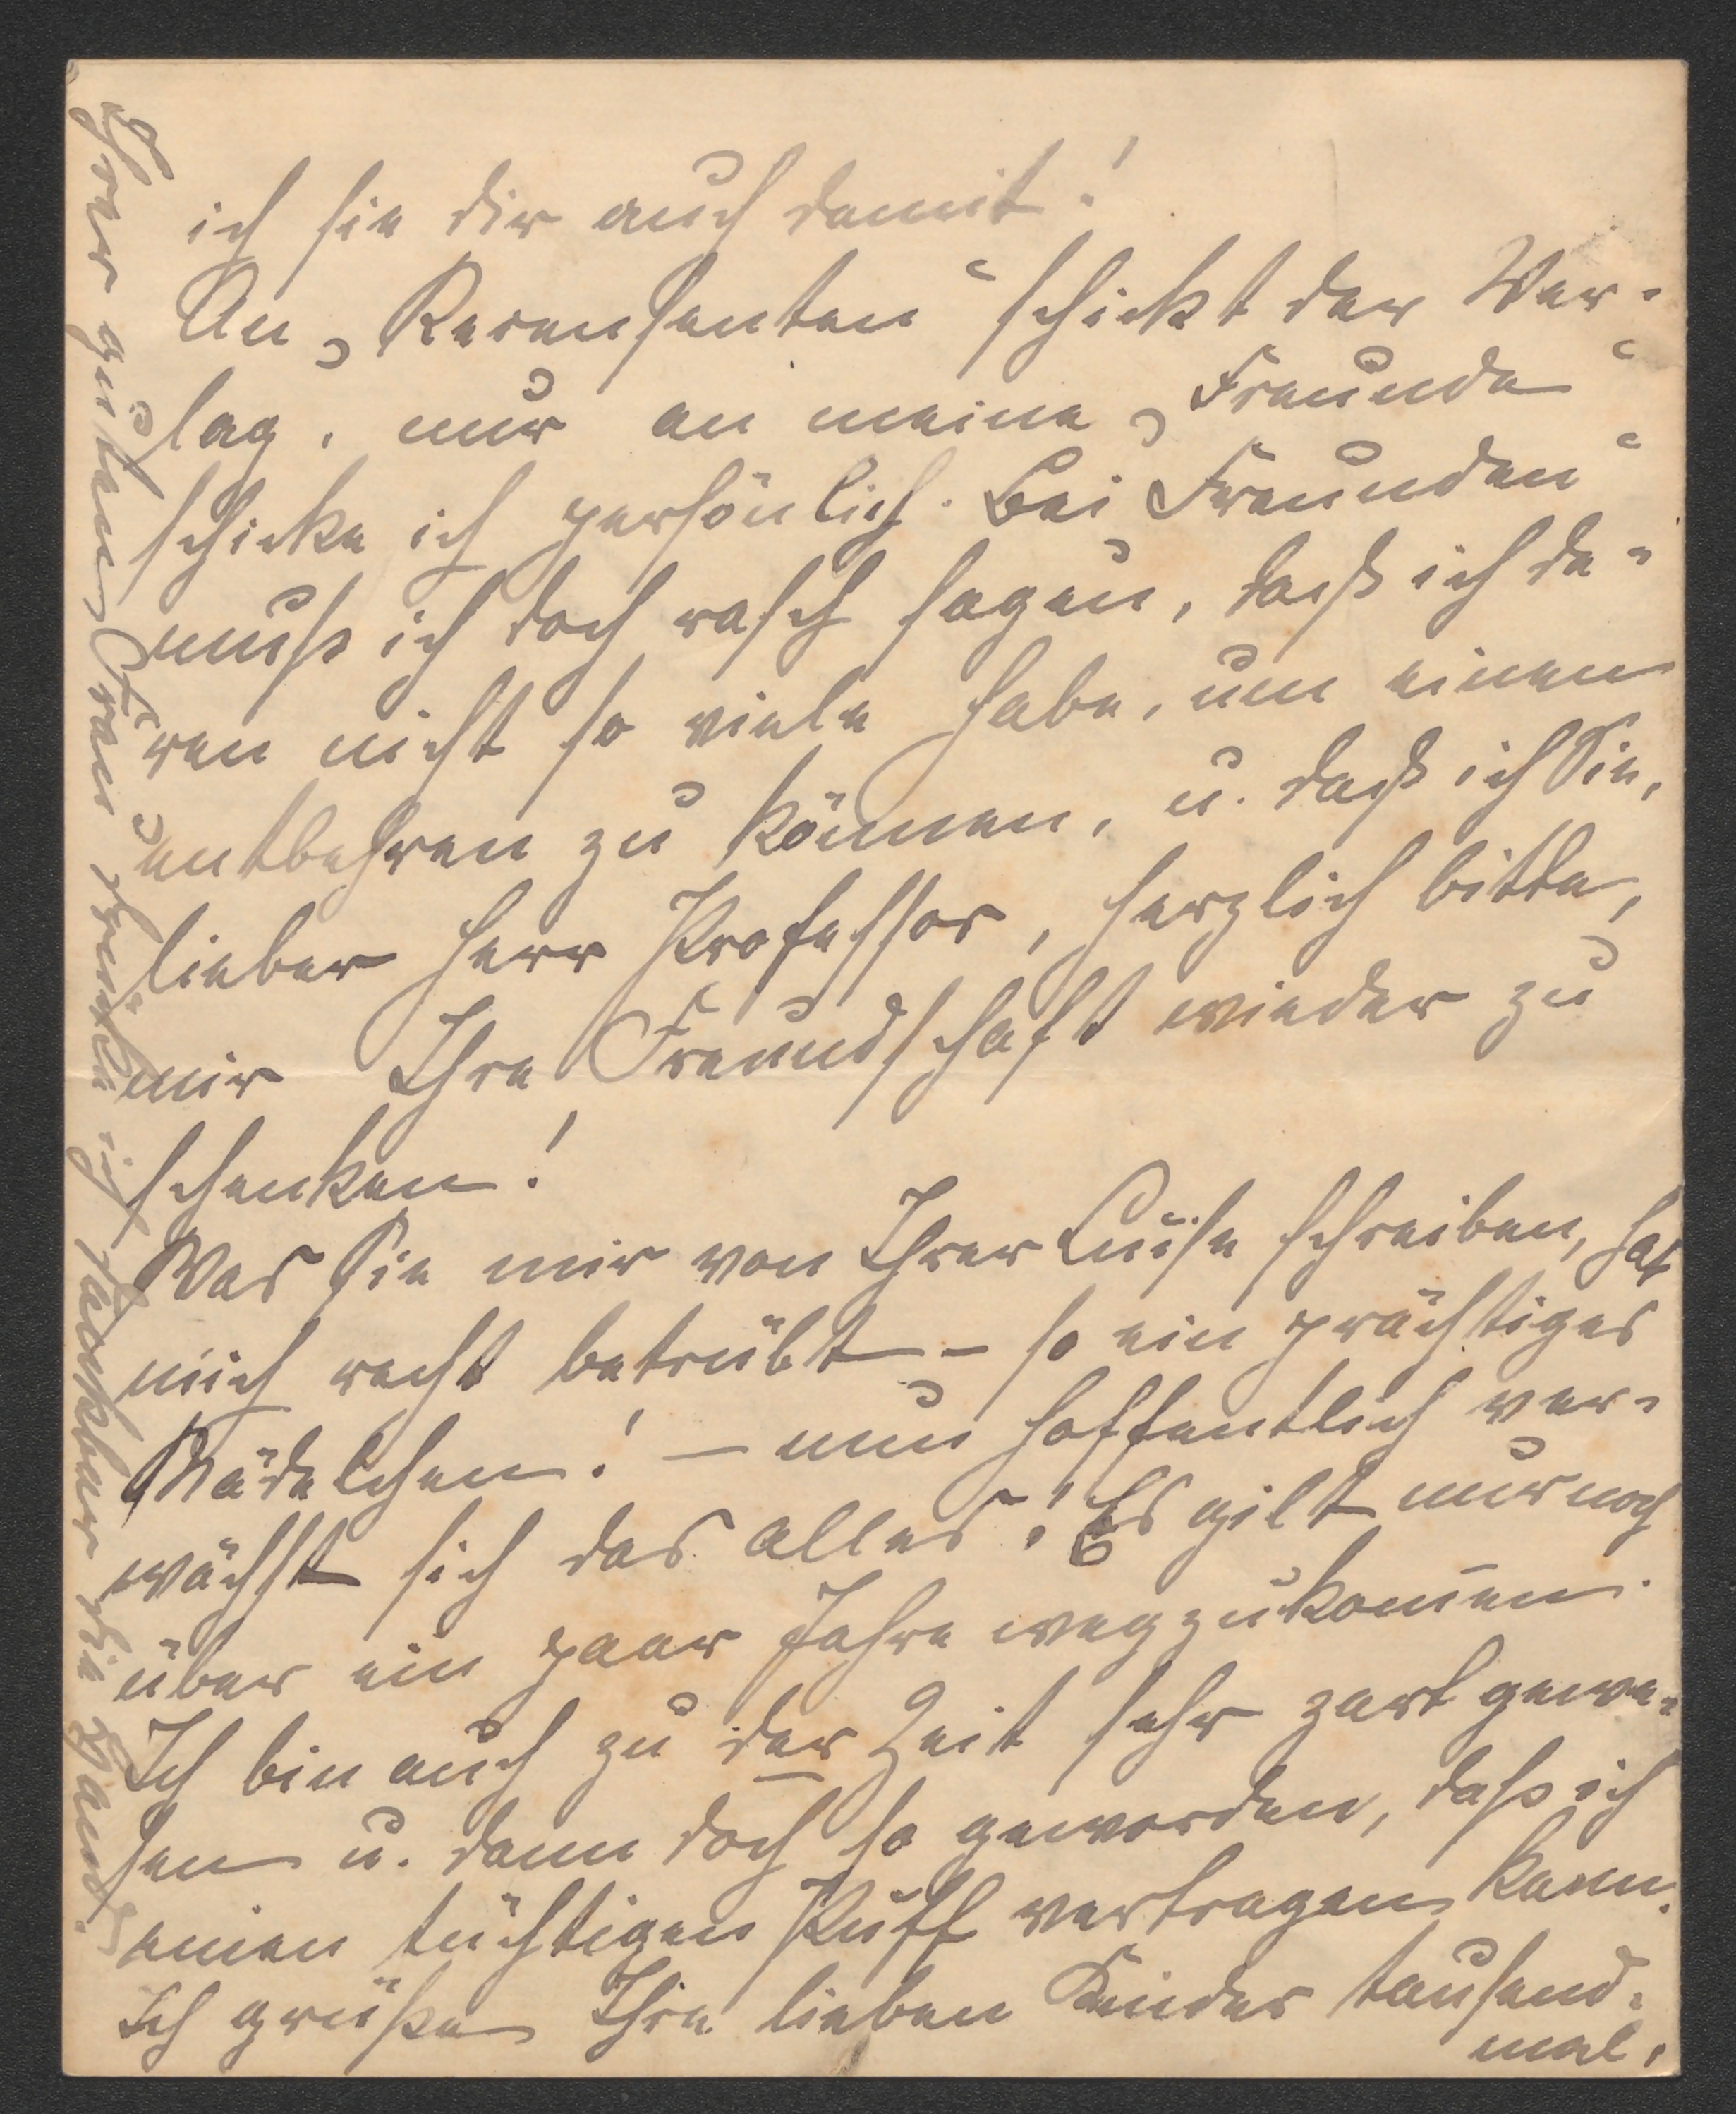 ich sie dir auch damit!
An „Recensenten“ schickt der Ver-
lag, nur an meine „Freunde“
schicke ich persönlich. Bei Freunden“
muß ich doch rasch sagen, daß ich de-
ren nicht so viele habe, um einen
entbehren zu können, u. daß ich Sie,
lieber Herr Professor, herzlich bitte,
mir Ihre Freundschaft wieder zu
schenken!
Was Sie mir von Ihrer Luise schreiben, hat
mich recht betrübt – so ein prächtiges
Mädelchen! – nun hoffentlich ver-
wächst sich das alles! Es gilt nur noch
über ein paar Jahre wegzukom̅en.
Ich bin auch zu der Zeit sehr zart gewe-
sen u. dann doch so geworden, daß ich
einen tüchtigen Puff vertragen kann.
Ich grüße Ihre lieben Kinder tausend-
mal.
Ihrer guten Frau drücke ich dankbar die Hand.